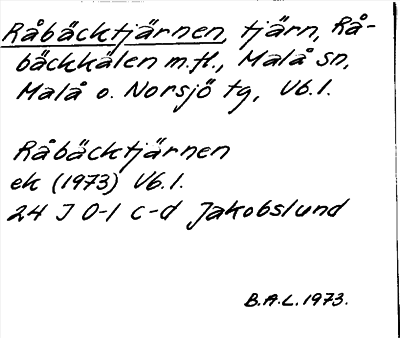 Råbäcktjärnen, tjärn, Rå-
bäckkälen m.fl., Malå sn,
Malå o. Norsjö tg, Vb.l.
Råbäcktjärnen
ek (1973) Vb.l.
24 J 0-1 c-d Jakobslund
B.A.L. 1973.